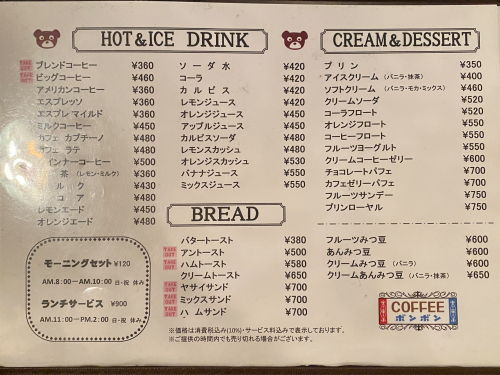 HOT & ICE DRINK
TAKE OUT ブレンドコーヒー ¥360
TAKE OUT ビッグコーヒー ¥460
アメリカンコーヒー ¥360
エスプレッソ ¥360
エスプレ マイルド ¥360
ミルクコーヒー ¥450
カフェ カプチーノ ¥480
カフェ ラテ ¥480
インナーコーヒー ¥500
茶 (レモン・ミルク) ¥360
ルク ¥430
コア ¥480
レモンエード ¥450
オレンジエード ¥480
ソーダ水 ¥420
コーラ ¥420
カルピス ¥420
レモンジュース ¥450
オレンジジュース ¥450
アップルジュース ¥450
カルピスソーダ ¥480
レモンスカッシュ ¥480
オレンジスカッシュ ¥530
バナナジュース ¥550
ミックスジュース ¥550
BREAD
バタートースト ¥380
TAKE OUT アントースト ¥500
TAKE OUT ハムトースト ¥580
クリームトースト ¥650
TAKE OUT ヤサイサンド ¥700
TAKE OUT ミックスサンド ¥700
TAKE OUT ハムサンド ¥700
CREAM & DESSERT
プリン ¥350
アイスクリーム (バニラ・抹茶) ¥400
ソフトクリーム (バニラ・モカ・ミックス) ¥460
クリームソーダ ¥520
コーラフロート ¥520
オレンジフロート ¥550
コーヒーフロート ¥550
フルーツヨーグルト ¥550
クリームコーヒーゼリー ¥600
チョコレートパフェ ¥700
カフェゼリーパフェ ¥700
フルーツサンデー ¥750
プリンローヤル ¥750
フルーツみつ豆 ¥600
あんみつ豆 ¥600
クリームみつ豆 (バニラ) ¥600
クリームあんみつ豆 (バニラ・抹茶) ¥650
モーニングセット ¥120
AM.8:00—AM.10:00 日・祝 休み
ランチサービス ¥900
AM.11:00—PM.2:00 日・祝 休み
※価格は消費税込み(10%)・サービス料込みで表示しております。
※ご提供の時間内でも売り切れる場合がございます。
COFFEE
ボンボン